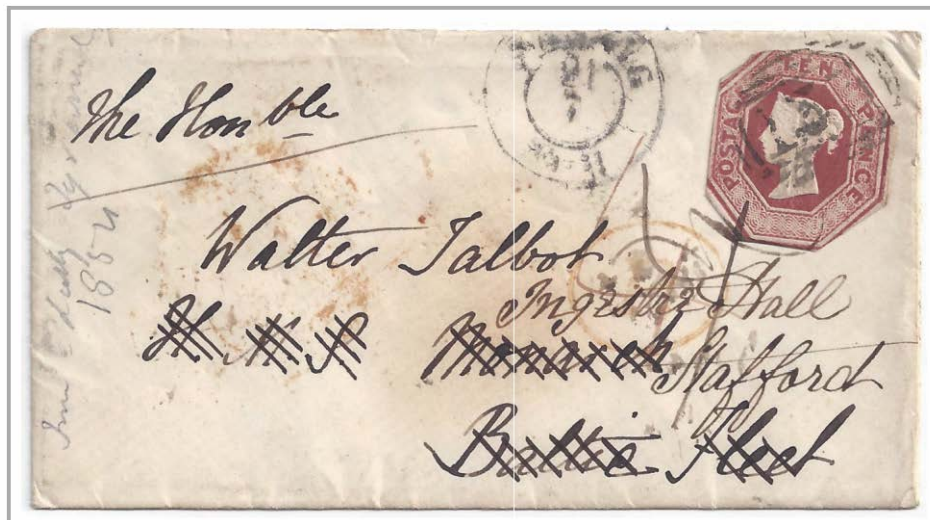 The Honble
Walter Talbot
Ingestre Hall
H M S Monarch Stafford
Baltic Fleet
POSTAGE TEN PENCE
1854